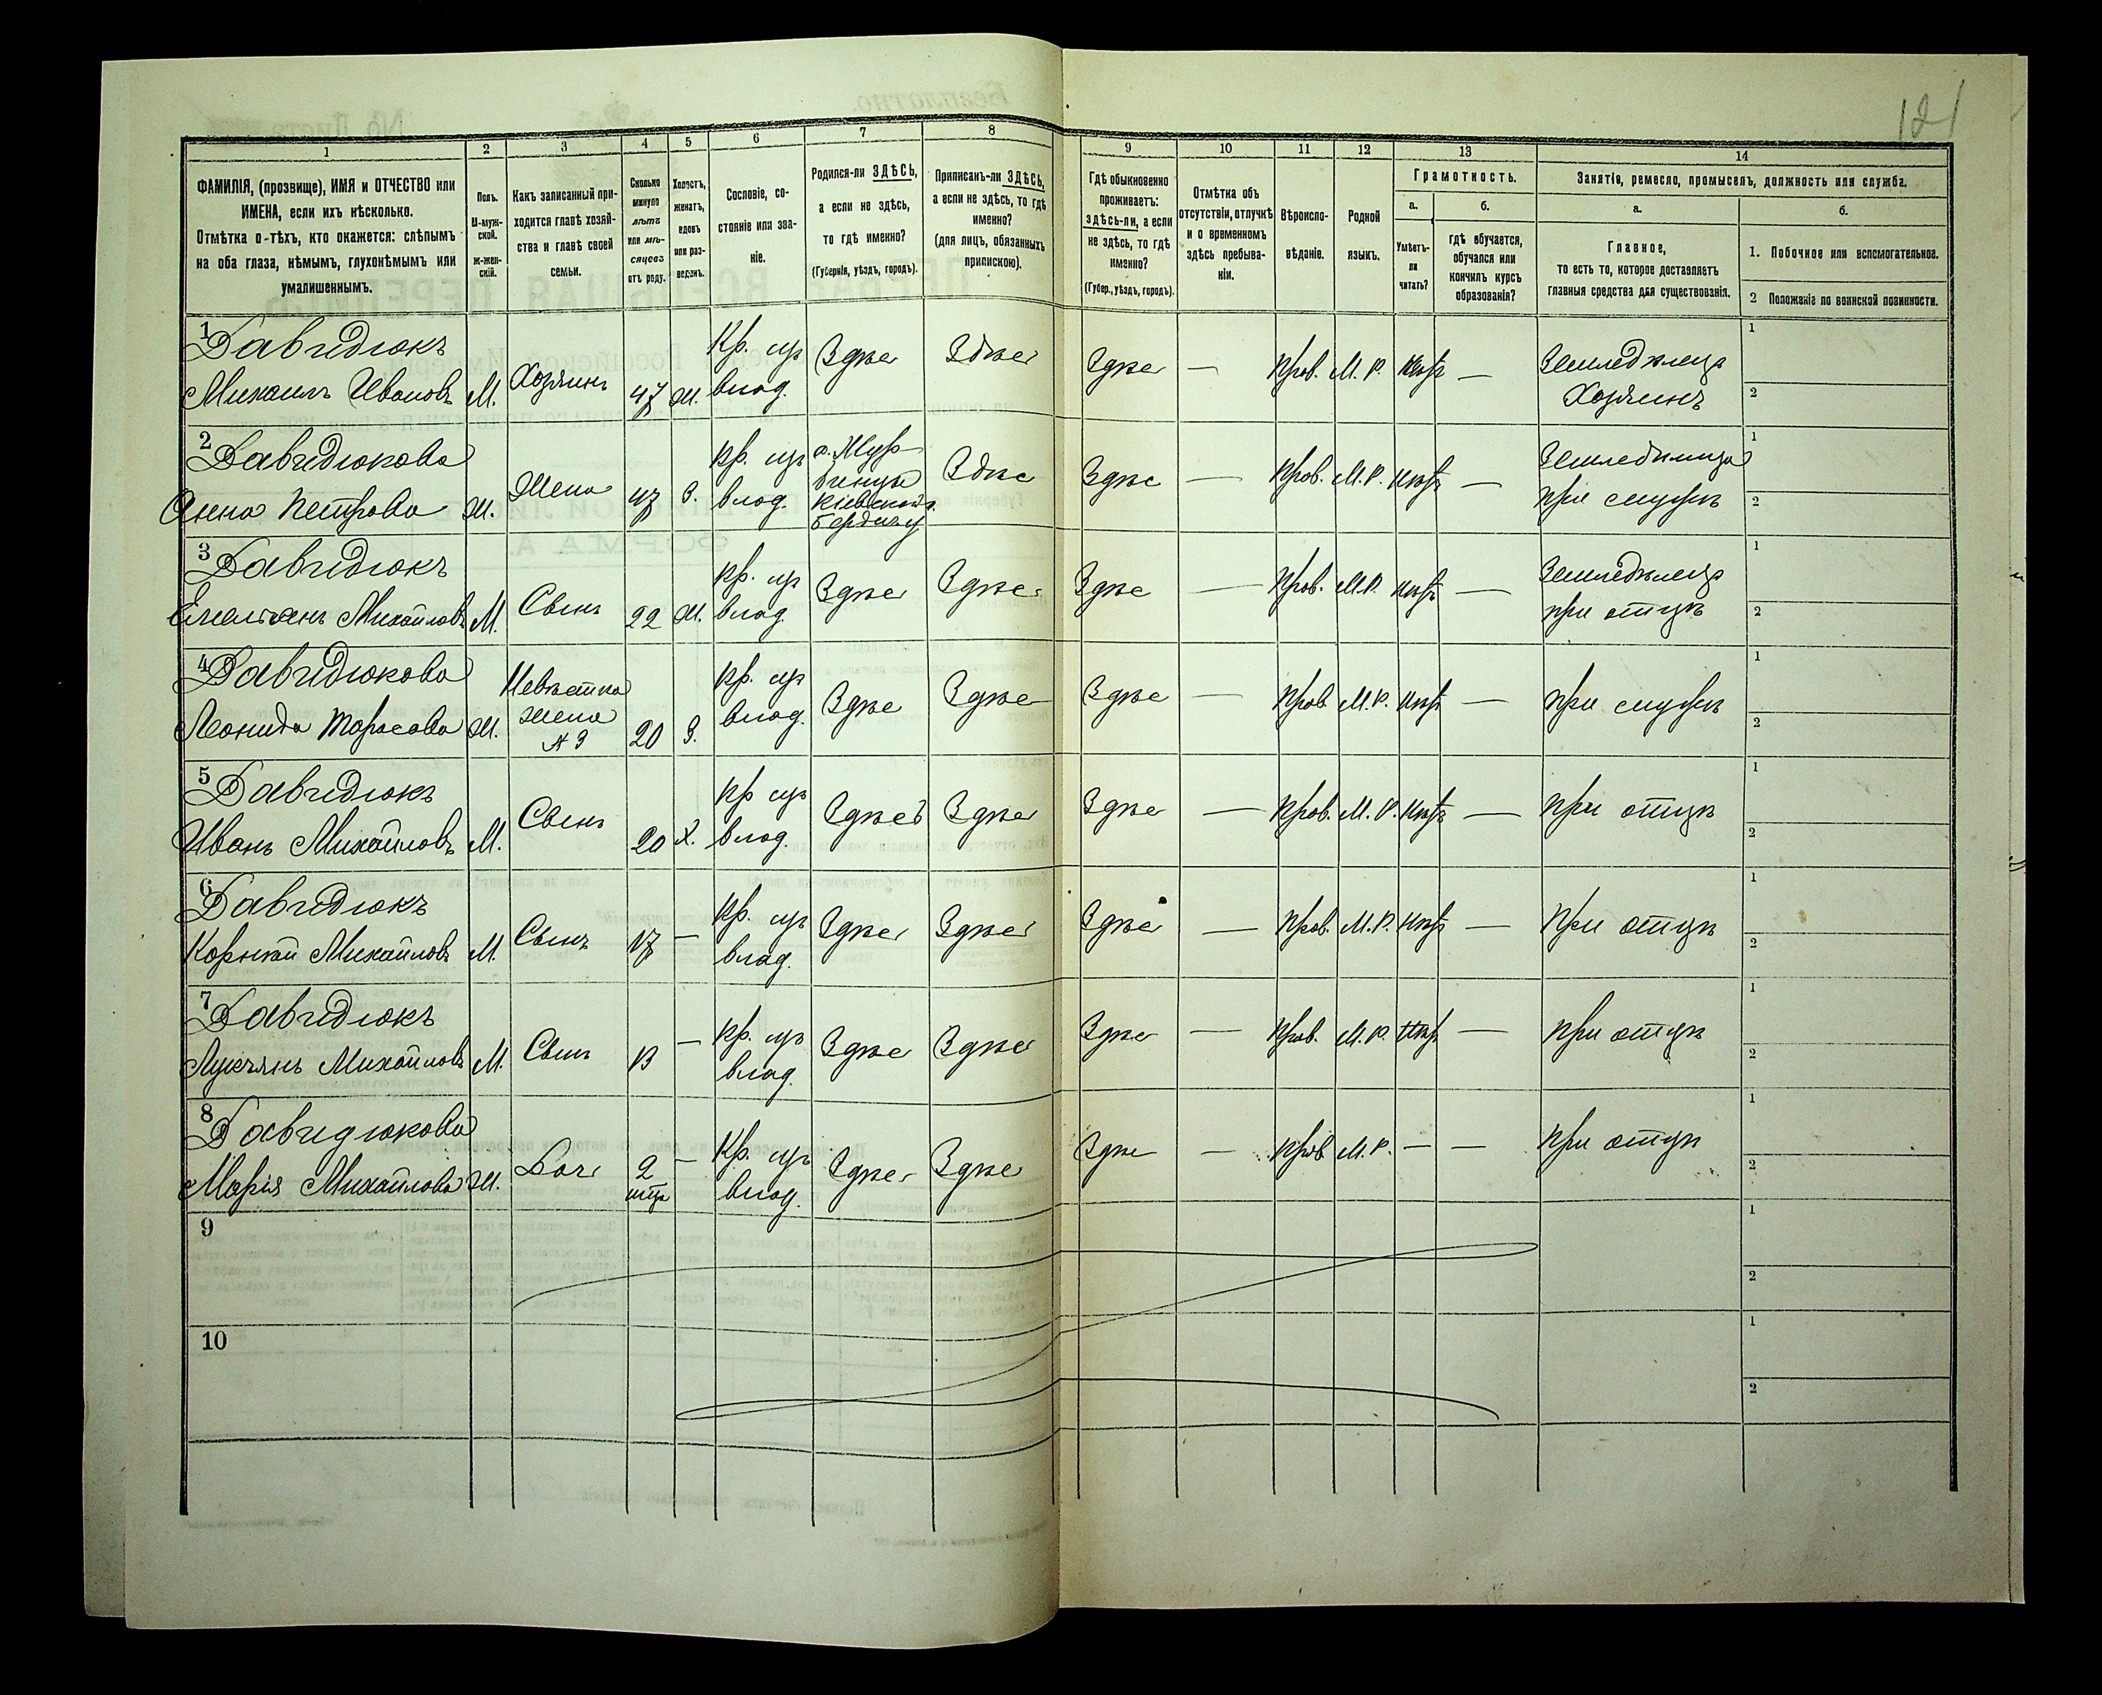 121
1
2
3
4
5
6
7
8
9
10
11
12
13
14
ФАМИЛІЯ, (прозвище), ИМЯ и ОТЧЕСТВО или
ИМЕНА, если ихъ нѣсколько.
Отмѣтка о-тѣхъ, кто окажется: слѣпымъ
на оба глаза, нѣмымъ, глухонѣмымъ или
умалишеннымъ.
Полъ.
М-муж-
ской.
ж-жен-
скій.
Какъ записанный при-
ходится главѣ хозяй-
ства и главѣ своей
семьи.
Сколько
минуло
лѣтъ
или мѣ-
сяцевъ
отъ роду.
Холостъ,
женатъ,
вдовъ
или раз-
веденъ.
Сословіе, со-
стояніе или зва-
ніе.
Родился-ли ЗДѢСЬ,
а если не здѣсь,
то гдѣ именно?
(Губернія, уѣздъ, городъ).
Приписанъ-ли ЗДѢСЬ,
а если не здѣсь, то гдѣ
именно?
(для лицъ, обязанныхъ
припискою).
Гдѣ обыкновенно
проживаетъ:
здѣсь-ли, а если
не здѣсь, то гдѣ
именно?
(Губер., уѣздъ, городъ).
Отмѣтка объ
отсутствіи, отлучкѣ
и о временномъ
здѣсь пребыва-
ніи.
Вѣроиспо-
вѣданіе.
Родной
языкъ.
Грамотность.
а.
Умѣетъ-
ли
читать?
б.
гдѣ обучается,
обучался или
кончилъ курсъ
образованія?
Занятіе, ремесло, промыселъ, должность или служба.
а.
Главное,
то есть то, которое доставляетъ
главныя средства для существованія.
б.
1. Побочное или вспомогательное.
2 Положеніе по воинской повинности.
1 Давидюкъ
Михаилъ Ивановъ М. Хозяинъ 47 Ж. Кр. изъ влад. Здѣсь Здѣсь Здѣсь — Прав. М. Р. Нѣтъ — Земледѣлецъ
Хозяинъ
1
2
2 Давидюкова
Анна Петрова Ж. Жена 47 З. Кр. изъ влад. Здѣсь Здѣсь — Прав. М. Р. Нѣтъ — Земледѣлица
при мужѣ
1
2
3 Давидюкъ
Емельянъ Михайловъ М. Сынъ 22 Ж. Кр. изъ влад. Здѣсь Здѣсь Здѣсь — Прав. М. Р. Нѣтъ — Земледѣлецъ
при отцѣ
1
2
4 Давидюкова
Леонида Тарасова Ж. Невѣстка
жена
№ 3 20 З. Кр. изъ влад. Здѣсь Здѣсь Здѣсь — Прав. М. Р. Нѣтъ — При мужѣ
1
2
5 Давидюкъ
Иванъ Михайловъ М. Сынъ 20 Х. Кр изъ влад. Здѣсь Здѣсь Здѣсь — Прав. М. Р. Нѣтъ — При отцѣ
1
2
6 Давидюкъ
Корнѣй Михайловъ М. Сынъ 17 — Кр. изъ влад. Здѣсь Здѣсь Здѣсь — Прав. М. Р. Нѣтъ — При отцѣ
1
2
7 Давидюкъ
Лукъянъ Михайловъ М. Сынъ 13 — Кр. изъ влад. Здѣсь Здѣсь Здѣсь — Прав. М. Р. Нѣтъ — При отцѣ
1
2
8 Давидюкова
Марія Михайлова Ж. Дочь 2 — Кр. изъ влад. Здѣсь Здѣсь Здѣсь — Прав. М. Р. — — При отцѣ
1
2
9
1
2
10
1
2